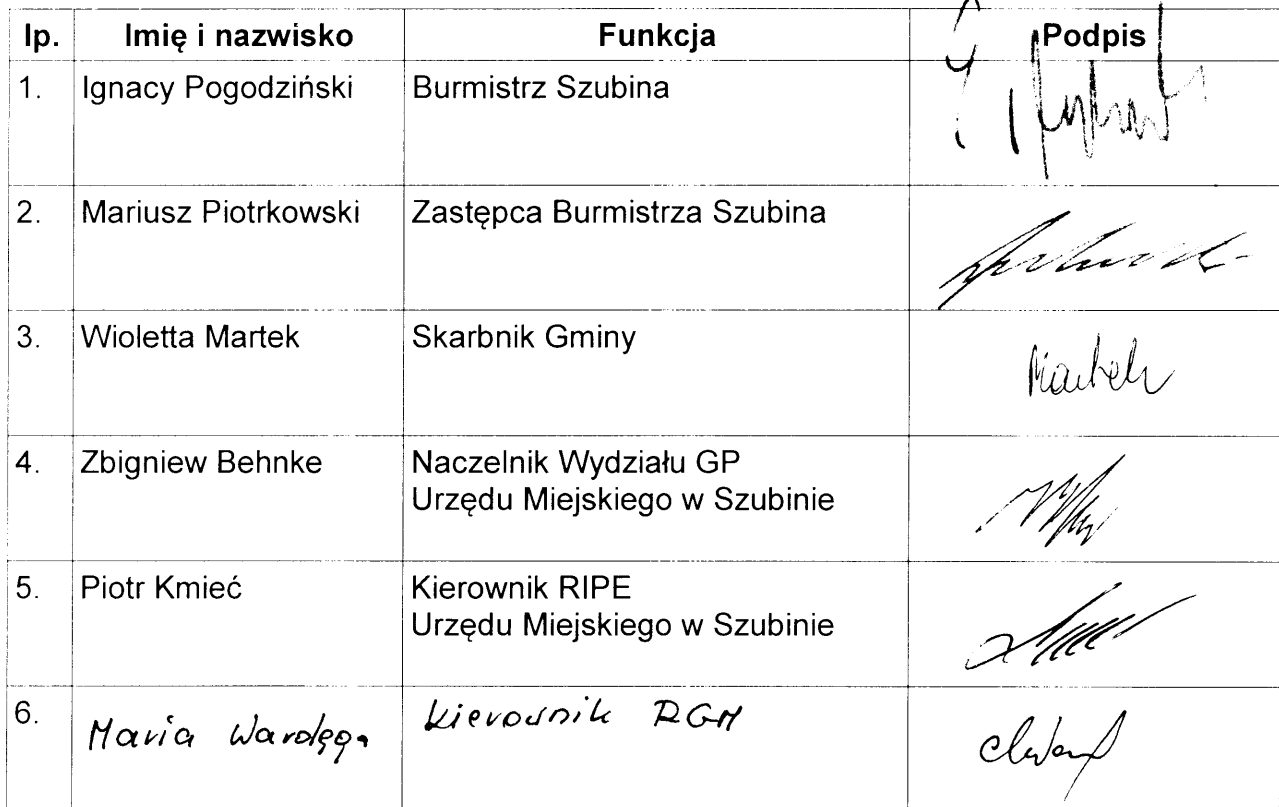 lp. Imię i nazwisko Funkcja Podpis
1. Ignacy Pogodziński Burmistrz Szubina
2. Mariusz Piotrkowski Zastępca Burmistrza Szubina
3. Wioletta Martek Skarbnik Gminy Martek
4. Zbigniew Behnke Naczelnik Wydziału GP
Urzędu Miejskiego w Szubinie
5. Piotr Kmieć Kierownik RIPE
Urzędu Miejskiego w Szubinie
6. Maria Wardęga Kierownik RGM